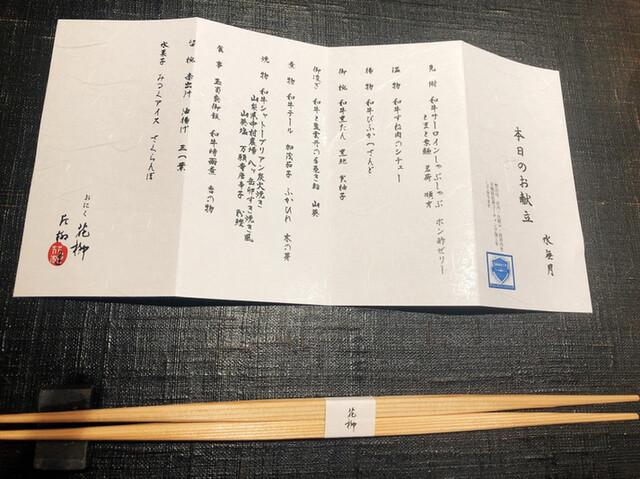 本日のお献立
水無月
先附 和牛サーロインしゃぶしゃぶ ポン酢ゼリー
とまと素麺 茗荷 順才
温物 和牛すね肉のシチュー
揚物 和牛びふかつさんど
御椀 和牛里たん 黒地 実柚子
御凌ぎ 和牛と雲丹の手巻き鮨 山葵
煮物 和牛テール 加茂茄子 ふかひれ 木の芽
焼物 和牛シャトーブリアン炭火焼き
山梨県中村農場 八ヶ岳卵すき焼き風
山葵塩 万願寺唐辛子
食事 玉蜀黍御飯 和牛時雨煮 香の物
留椀 赤出汁 油揚げ 三つ葉
水菓子 みつくアイス さくらんぼ
おにく 花柳
片柳
花柳